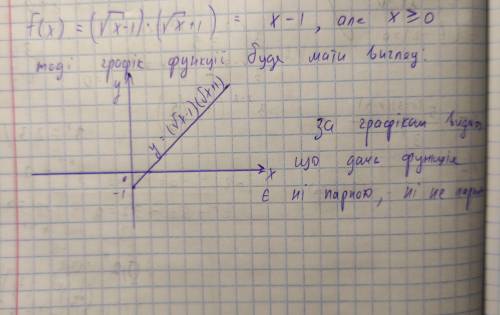 f(x) = (√x-1)·(√x+1) = x-1, але x⩾0
тоді графік функції буде мати вигляд:
y
y=(√x-1)(√x+1)
За графікам видно
x
що дана функція
0
-1
є ні парною, ні не парн